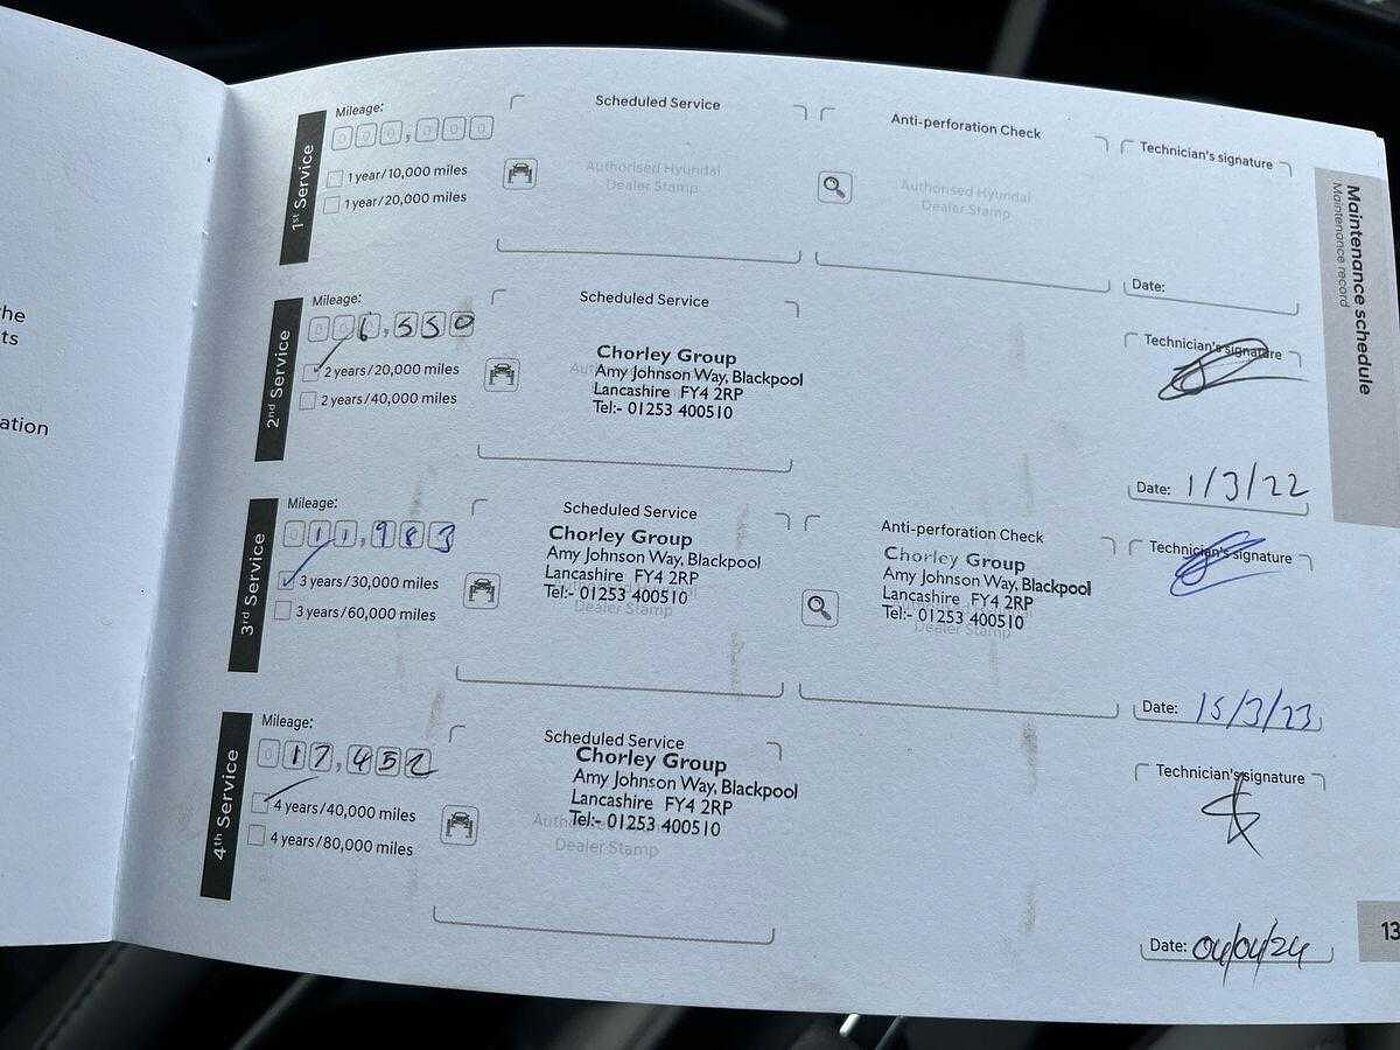 he
ts
ation
Maintenance schedule
Maintenance record
1st Service
Mileage:
000,000
1 year/10,000 miles
1 year/20,000 miles
Scheduled Service
Authorised Hyundai
Dealer Stamp
Anti-perforation Check
Authorised Hyundai
Dealer Stamp
Technician's signature
Date:
2nd Service
Mileage:
006,550
2 years/20,000 miles
2 years/40,000 miles
Scheduled Service
Chorley Group
Amy Johnson Way, Blackpool
Lancashire FY4 2RP
Tel:- 01253 400510
Technician's signature
Date: 1/3/22
3rd Service
Mileage:
011,983
3 years/30,000 miles
3 years/60,000 miles
Scheduled Service
Chorley Group
Amy Johnson Way, Blackpool
Lancashire FY4 2RP
Tel:- 01253 400510
Dealer Stamp
Anti-perforation Check
Chorley Group
Amy Johnson Way, Blackpool
Lancashire FY4 2RP
Tel:- 01253 400510
Dealer Stamp
Technician's signature
Date: 15/3/23
4th Service
Mileage:
017,452
4 years/40,000 miles
4 years/80,000 miles
Scheduled Service
Chorley Group
Amy Johnson Way, Blackpool
Lancashire FY4 2RP
Tel:- 01253 400510
Dealer Stamp
Technician's signature
Date: 04/04/24
13